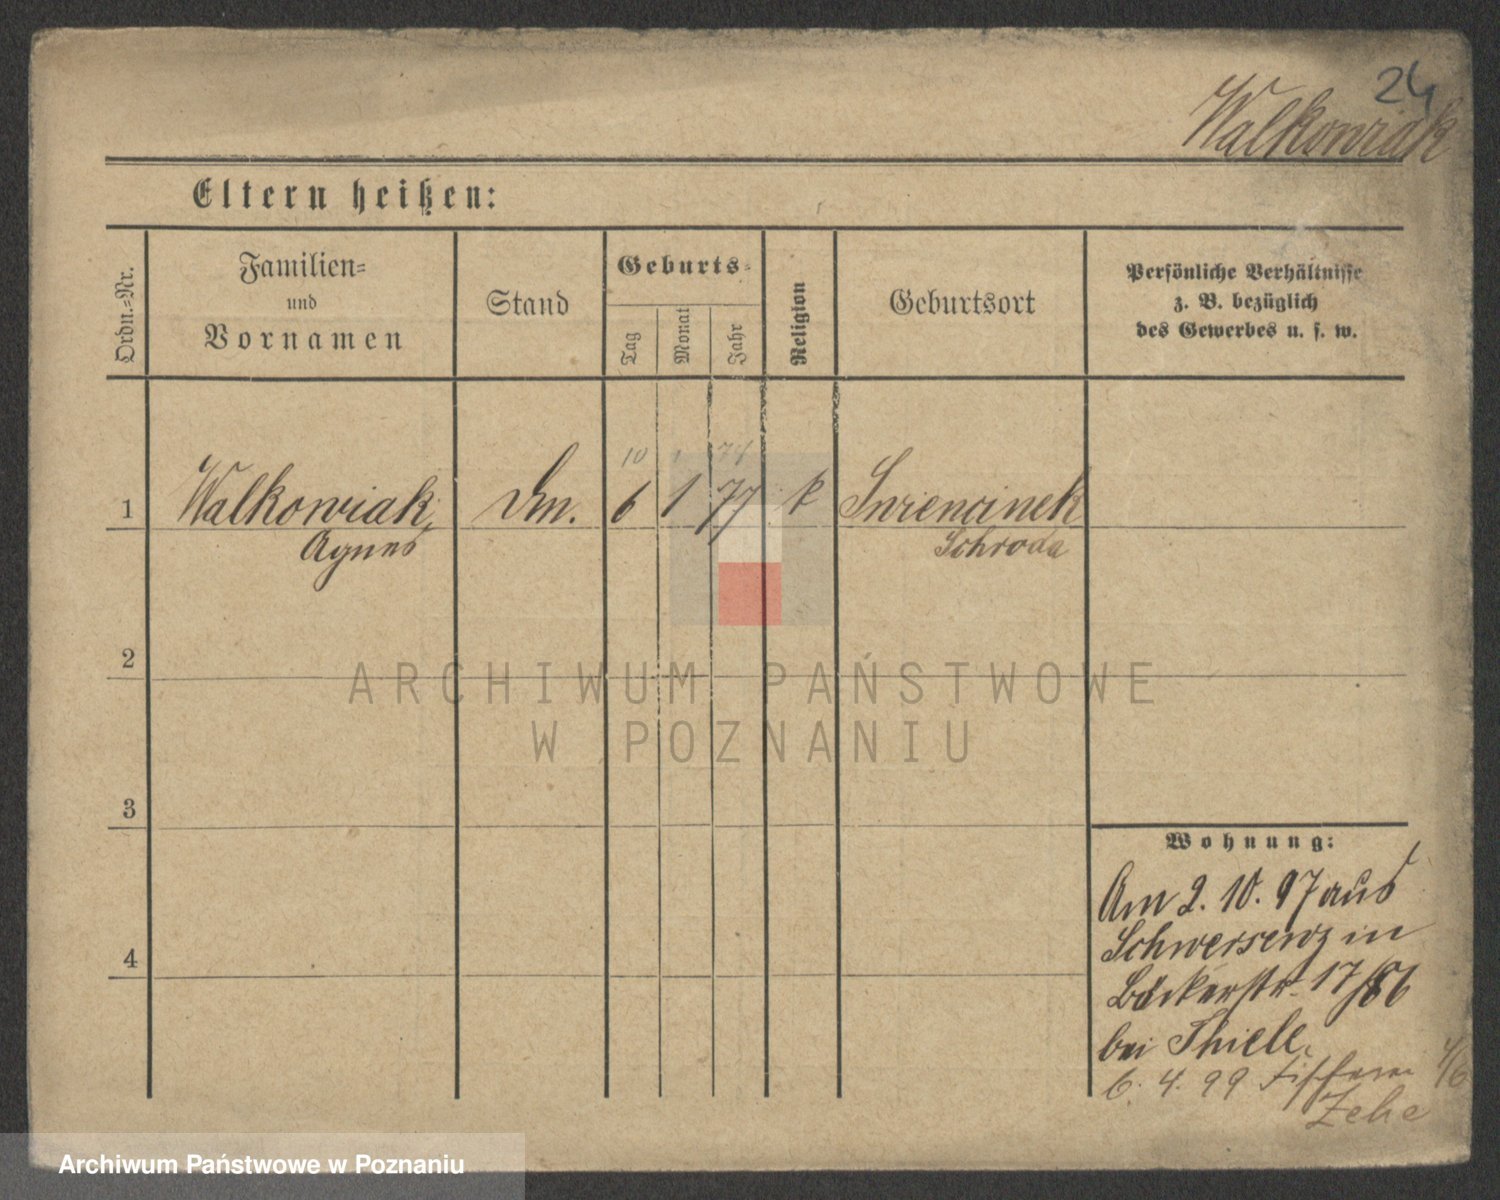 24
Walkowiak
Eltern heißen:
Ordn.-Nr.
Familien-
und
Vornamen
Stand
Geburts-
Tag
Monat
Jahr
Religion
Geburtsort
Persönliche Verhältnisse
z. B. bezüglich
des Gewerbes u. s. w.
10 1 74
1 Walkowiak, Dm. 6 1 77 k Swiencinek
Agnes Schroda
2
ARCHIWUM PAŃSTWOWE
W POZNANIU
3
Wohnung:
Am 2. 10. 97 aus
Schwersenz in
4
Bäckerstr. 17
bei Thiele
6. 4. 99 4/6
Zehe
Archiwum Państwowe w Poznaniu